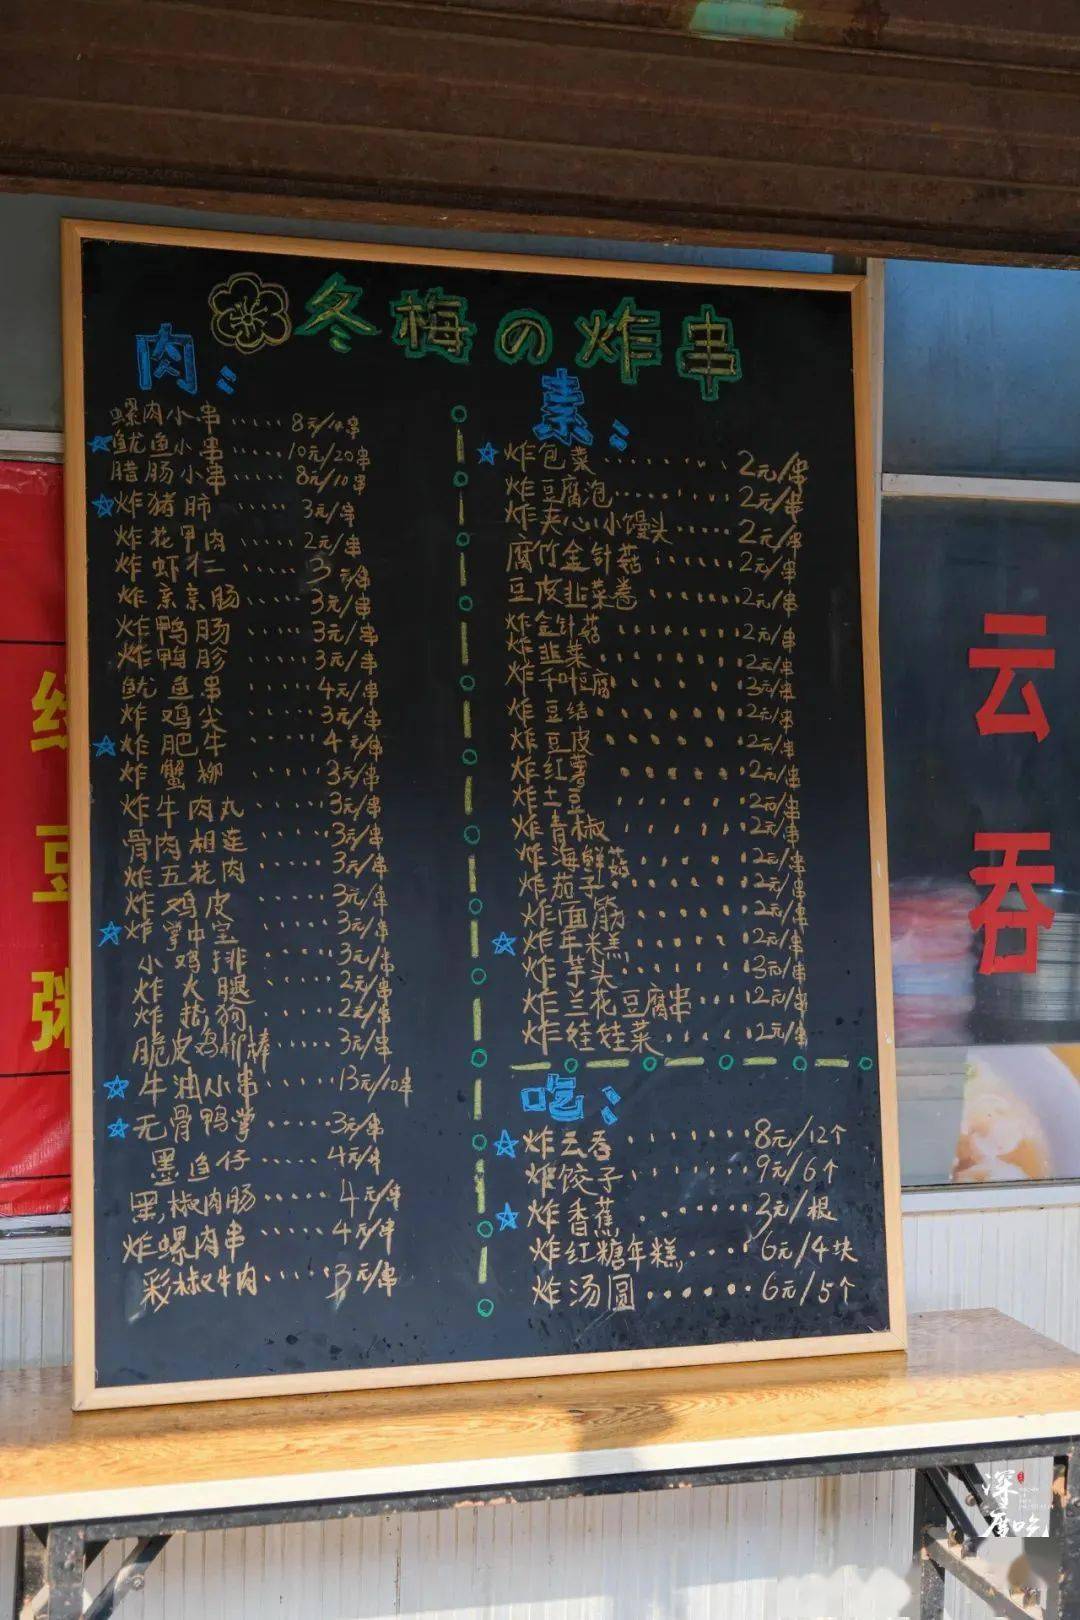 冬梅の炸串
肉：
螺肉小串……8元/10串
鱿鱼小串……10元/20串
腊肠小串……8元/10串
炸猪肺……3元/串
炸花甲肉……2元/串
炸虾仁……3元/串
炸亲亲肠……3元/串
炸鸭肠……3元/串
炸鸭胗……3元/串
鱿鱼串……4元/串
炸鸡尖……3元/串
炸肥牛……4元/串
炸蟹柳……3元/串
炸牛肉丸……3元/串
骨肉相莲……3元/串
炸五花肉……3元/串
炸鸡皮……3元/串
炸掌中宝……3元/串
小鸡排……3元/串
炸火腿……2元/串
炸热狗……2元/串
脆皮鸡柳棒……3元/串
牛油小串……13元/10串
无骨鸭掌……3元/串
墨鱼仔……4元/串
黑椒肉肠……4元/串
炸螺肉串……4元/串
彩椒牛肉……3元/串
素：
炸包菜……2元/串
炸豆腐泡……2元/串
炸夹心小馒头……2元/串
腐竹金针菇……2元/串
豆皮韭菜卷……2元/串
炸金针菇……2元/串
炸韭菜……2元/串
炸千叶豆腐……3元/串
炸豆结……2元/串
炸豆皮……2元/串
炸红薯……2元/串
炸土豆……2元/串
炸青椒……2元/串
炸海鲜菇……2元/串
炸茄子……2元/串
炸面筋……2元/串
炸年糕……2元/串
炸芋头……3元/串
炸兰花豆腐串……2元/串
炸娃娃菜……2元/串
吃：
炸云吞……8元/12个
炸饺子……9元/6个
炸香蕉……3元/根
炸红糖年糕……6元/4块
炸汤圆……6元/5个
云吞
豆
粥
深度吃